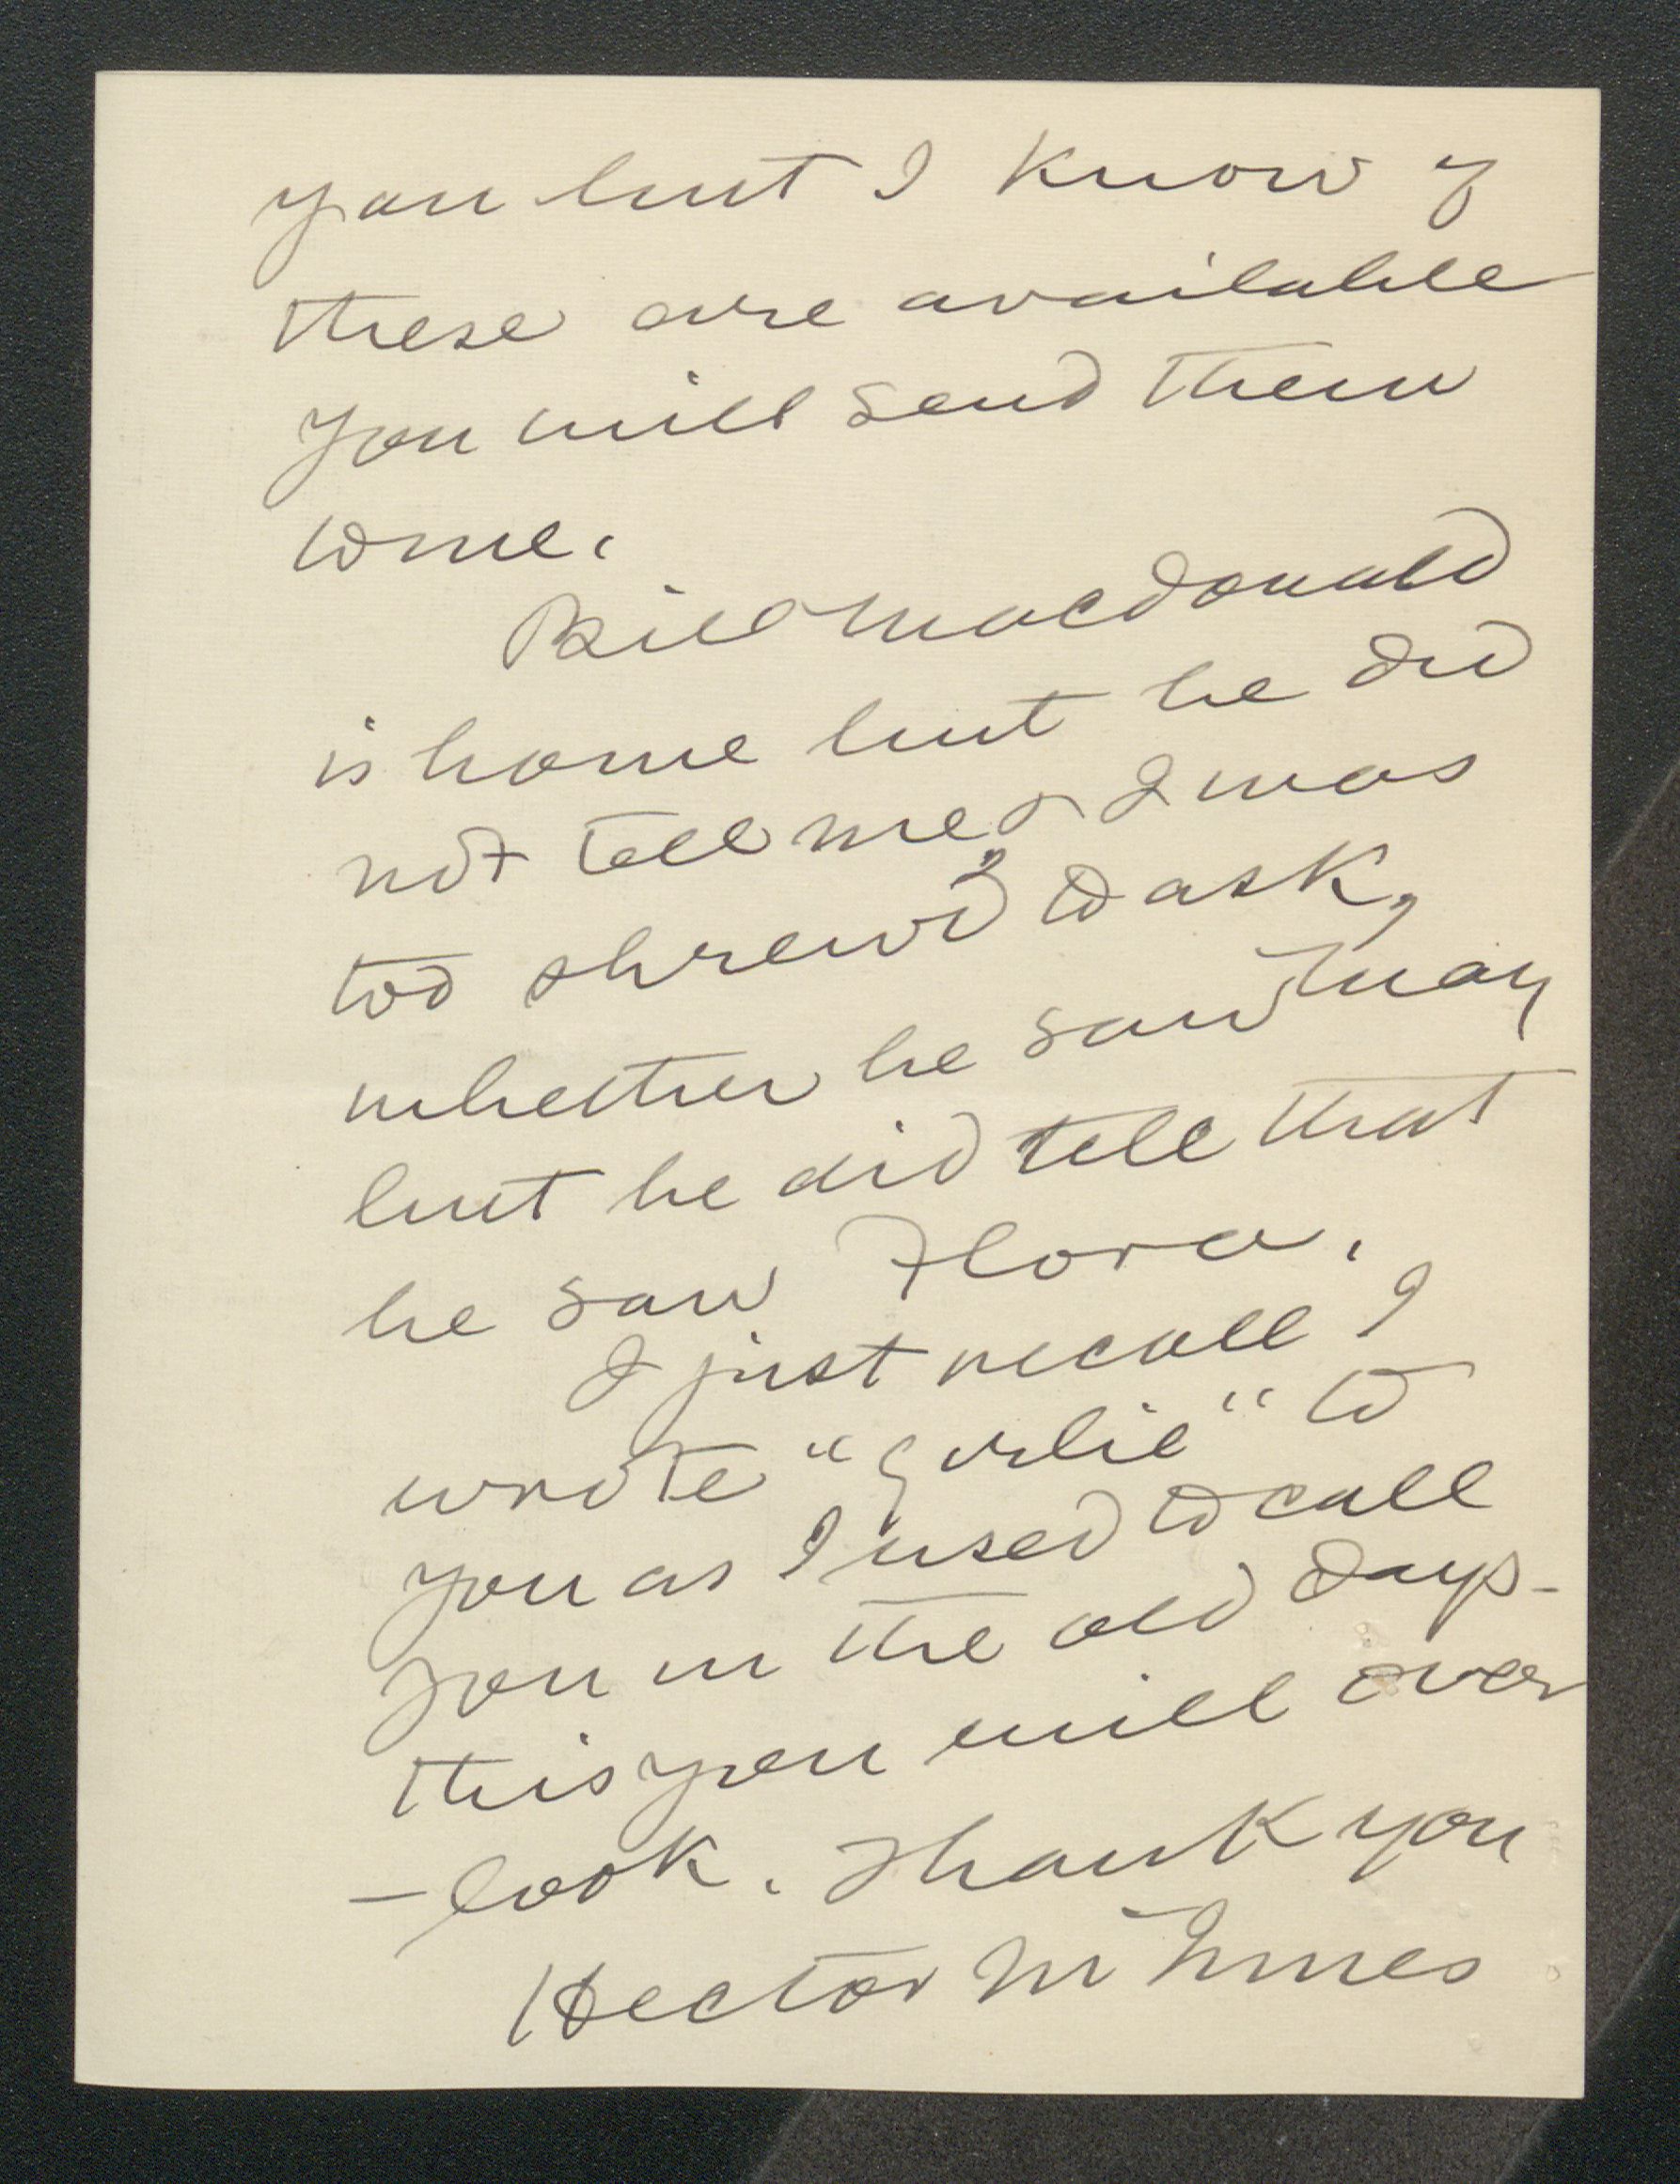 you but I know if
these are available
you will send them
to me.
Bill Macdonald
is home but he did
not tell me & I was
too shrewd" to ask,
whether he saw May
but he did tell that
he saw Flora.
I just recall I
wrote "girlie" to
you as I used to call
you in the old days -
this you will over
- look. Thank you
Hector McInnes